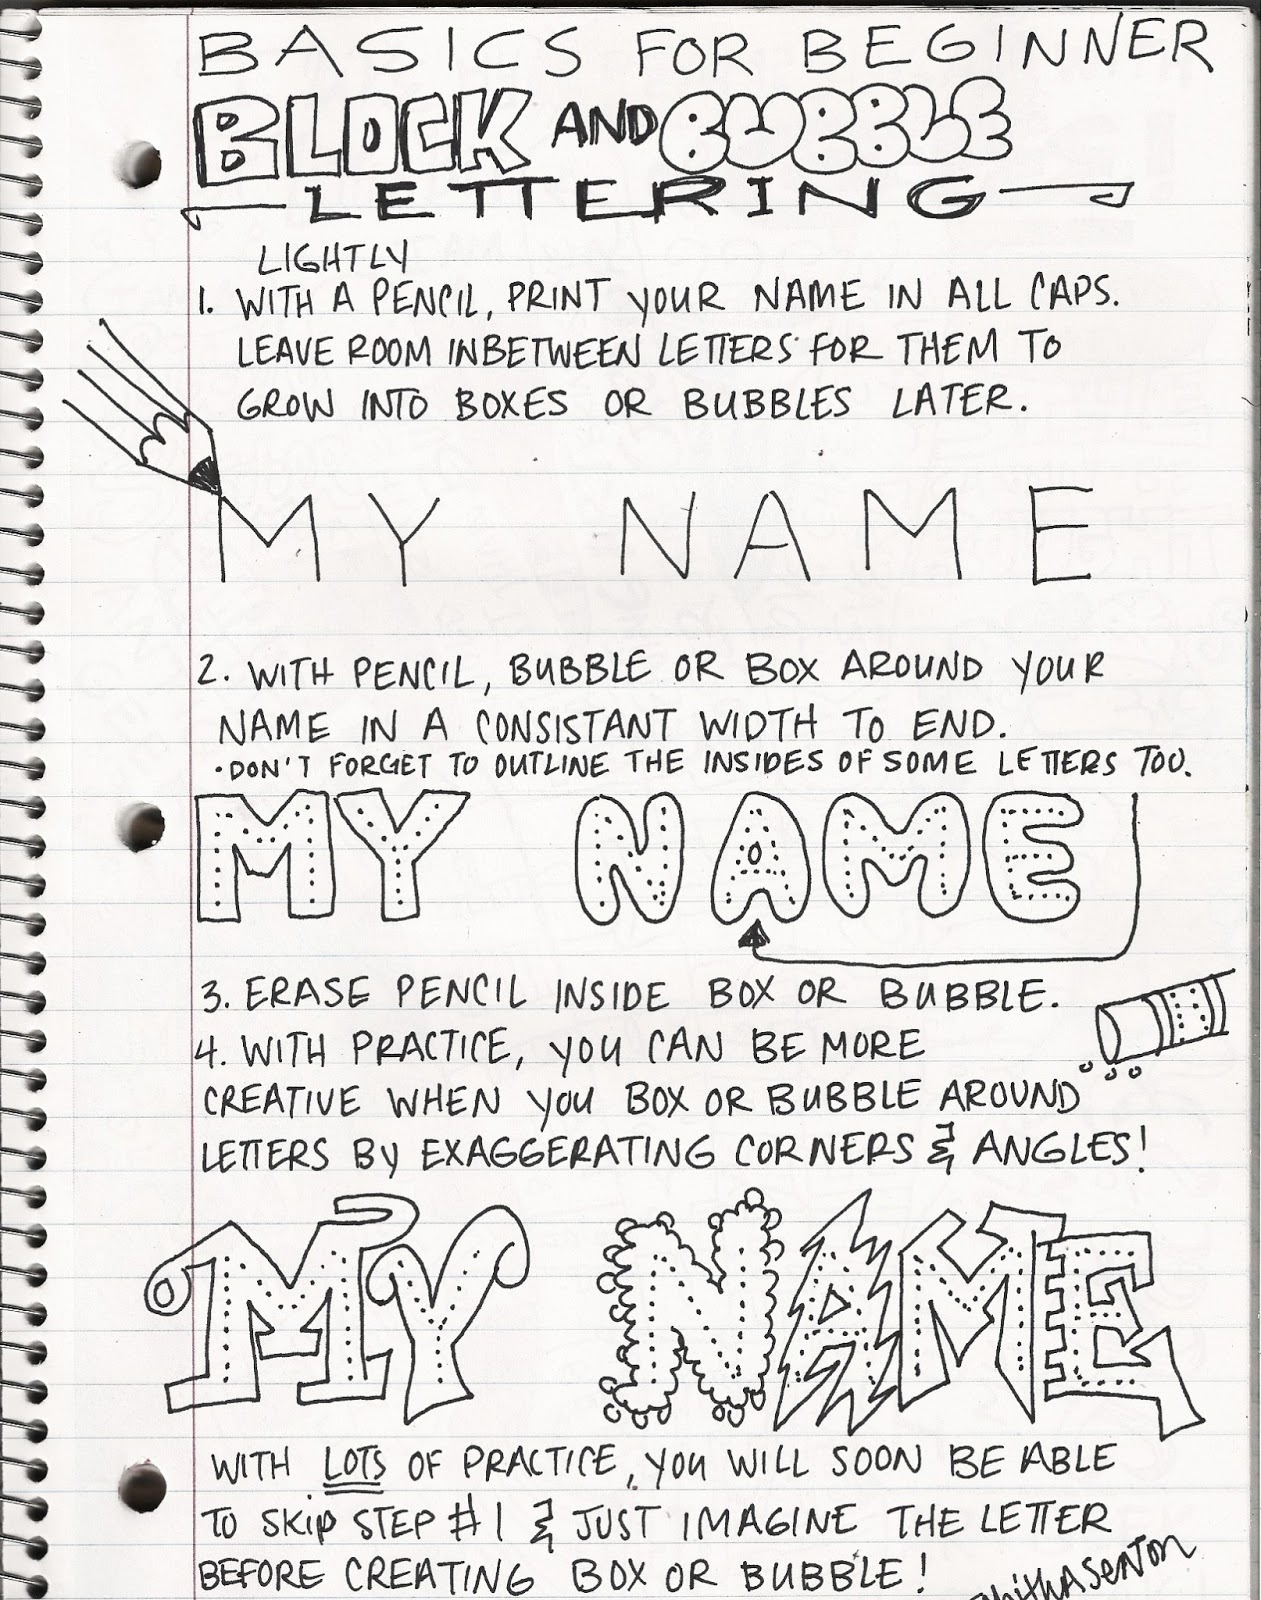 BASICS FOR BEGINNER
BLOCK AND BUBBLE
LETTERING
LIGHTLY
1. WITH A PENCIL, PRINT YOUR NAME IN ALL CAPS.
LEAVE ROOM INBETWEEN LETTERS FOR THEM TO
GROW INTO BOXES OR BUBBLES LATER.
MY NAME
2. WITH PENCIL, BUBBLE OR BOX AROUND YOUR
NAME IN A CONSISTANT WIDTH TO END.
• DON'T FORGET TO OUTLINE THE INSIDES OF SOME LETTERS TOO.
MY NAME
3. ERASE PENCIL INSIDE BOX OR BUBBLE.
4. WITH PRACTICE, YOU CAN BE MORE
CREATIVE WHEN YOU BOX OR BUBBLE AROUND
LETTERS BY EXAGGERATING CORNERS & ANGLES!
MY NAME
WITH LOTS OF PRACTICE, YOU WILL SOON BE ABLE
TO SKIP STEP #1 & JUST IMAGINE THE LETTER
BEFORE CREATING BOX OR BUBBLE!